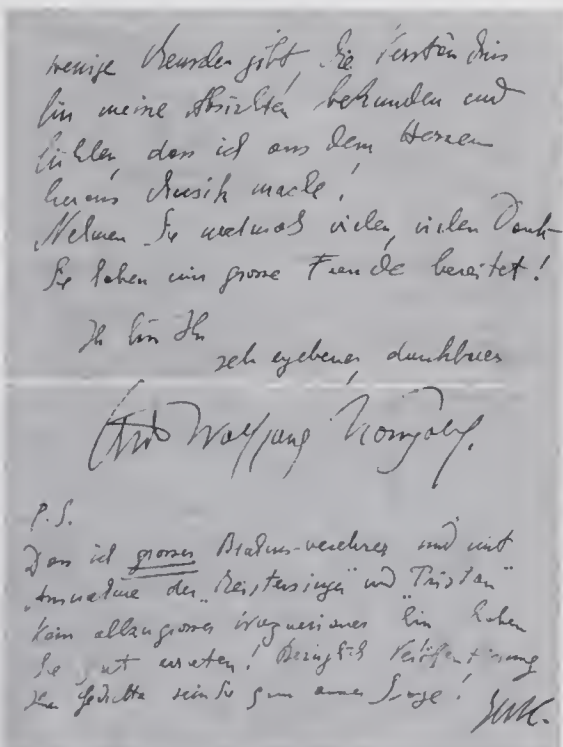 wenige Menschen gibt, die Verständnis
für meine Absichten bekunden und
fühlen, dass ich aus dem Herzen
heraus Musik mache!
Nehmen Sie nochmals vielen, vielen Dank
Sie haben mir grosse Freude bereitet!
Ihr bin Ihr
sehr ergebener, dankbarer
Erich Wolfgang Korngold.
P.S.
Dass ich grosser Brahms-verehrer und mit
Ausnahme der „Meistersinger" und „Tristan"
kein allzugrosser Wagnerianer bin haben
Sie gut erraten! Bezüglich Veröffentlichung
Ihrer Gedichte sein Sie ganz ausser Sorge!
EWK.